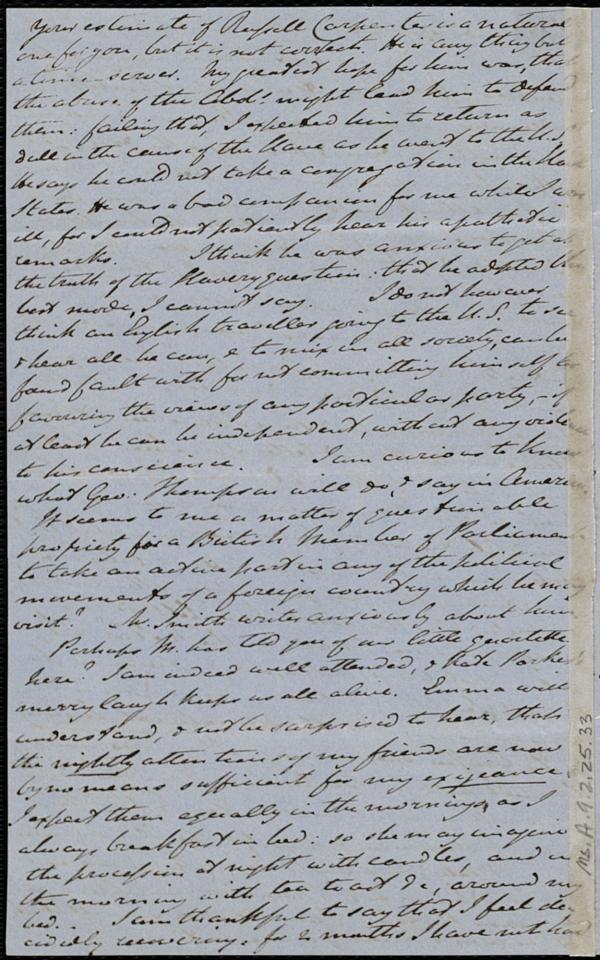 Your estimate of Russell Carpenter is a natural
one for you, but it is not correct. He is any thing but
a time-server. My greatest hope for him was, that
the abuse of the Abols. might lead him to defend
them: failing that, I expected him to return as
dull in the cause of the slave as he went to the U.S.
He says he could not take a congregation in the Slave
States. He was a bad companion for me while I was
ill, for I could not patiently hear his apathetic
remarks. I think he was anxious to get at
the truth of the Slavery question: that he adopted the
best mode, I cannot say. I do not however
think an English traveller going to the U.S. to see
& hear all he can, & to mix in all society, can be
found fault with for not committing himself to
favouring the views of any particular party, - if
at least he can be independent, without any viole
to his conscience. I am curious to know
what Geo: Thompson will do, & say in America.
It seems to me a matter of questionable
propriety for a British Member of Parliament
to take an active part in any of the political
movements of a foreign country which he may
visit? M. Smith writes anxiously about him
Perhaps M. has told you of our little quartette
here? I am indeed well attended, & Kate Parkes
merry laugh keeps us all alive. Emma will
understand, & not be surprised to hear, that
the nightly attentions of my friends are now
by no means sufficient for my exigeance
I expect them equally in the mornings, as I
always breakfast in bed: so she may imagine
the procession at night with candles, and in
the morning with tea toast &c, around my
bed. I am thankful to say that I feel de
cidedly recovering: for 2 months I have not had
Ms. A. 9. 2. 25. 33